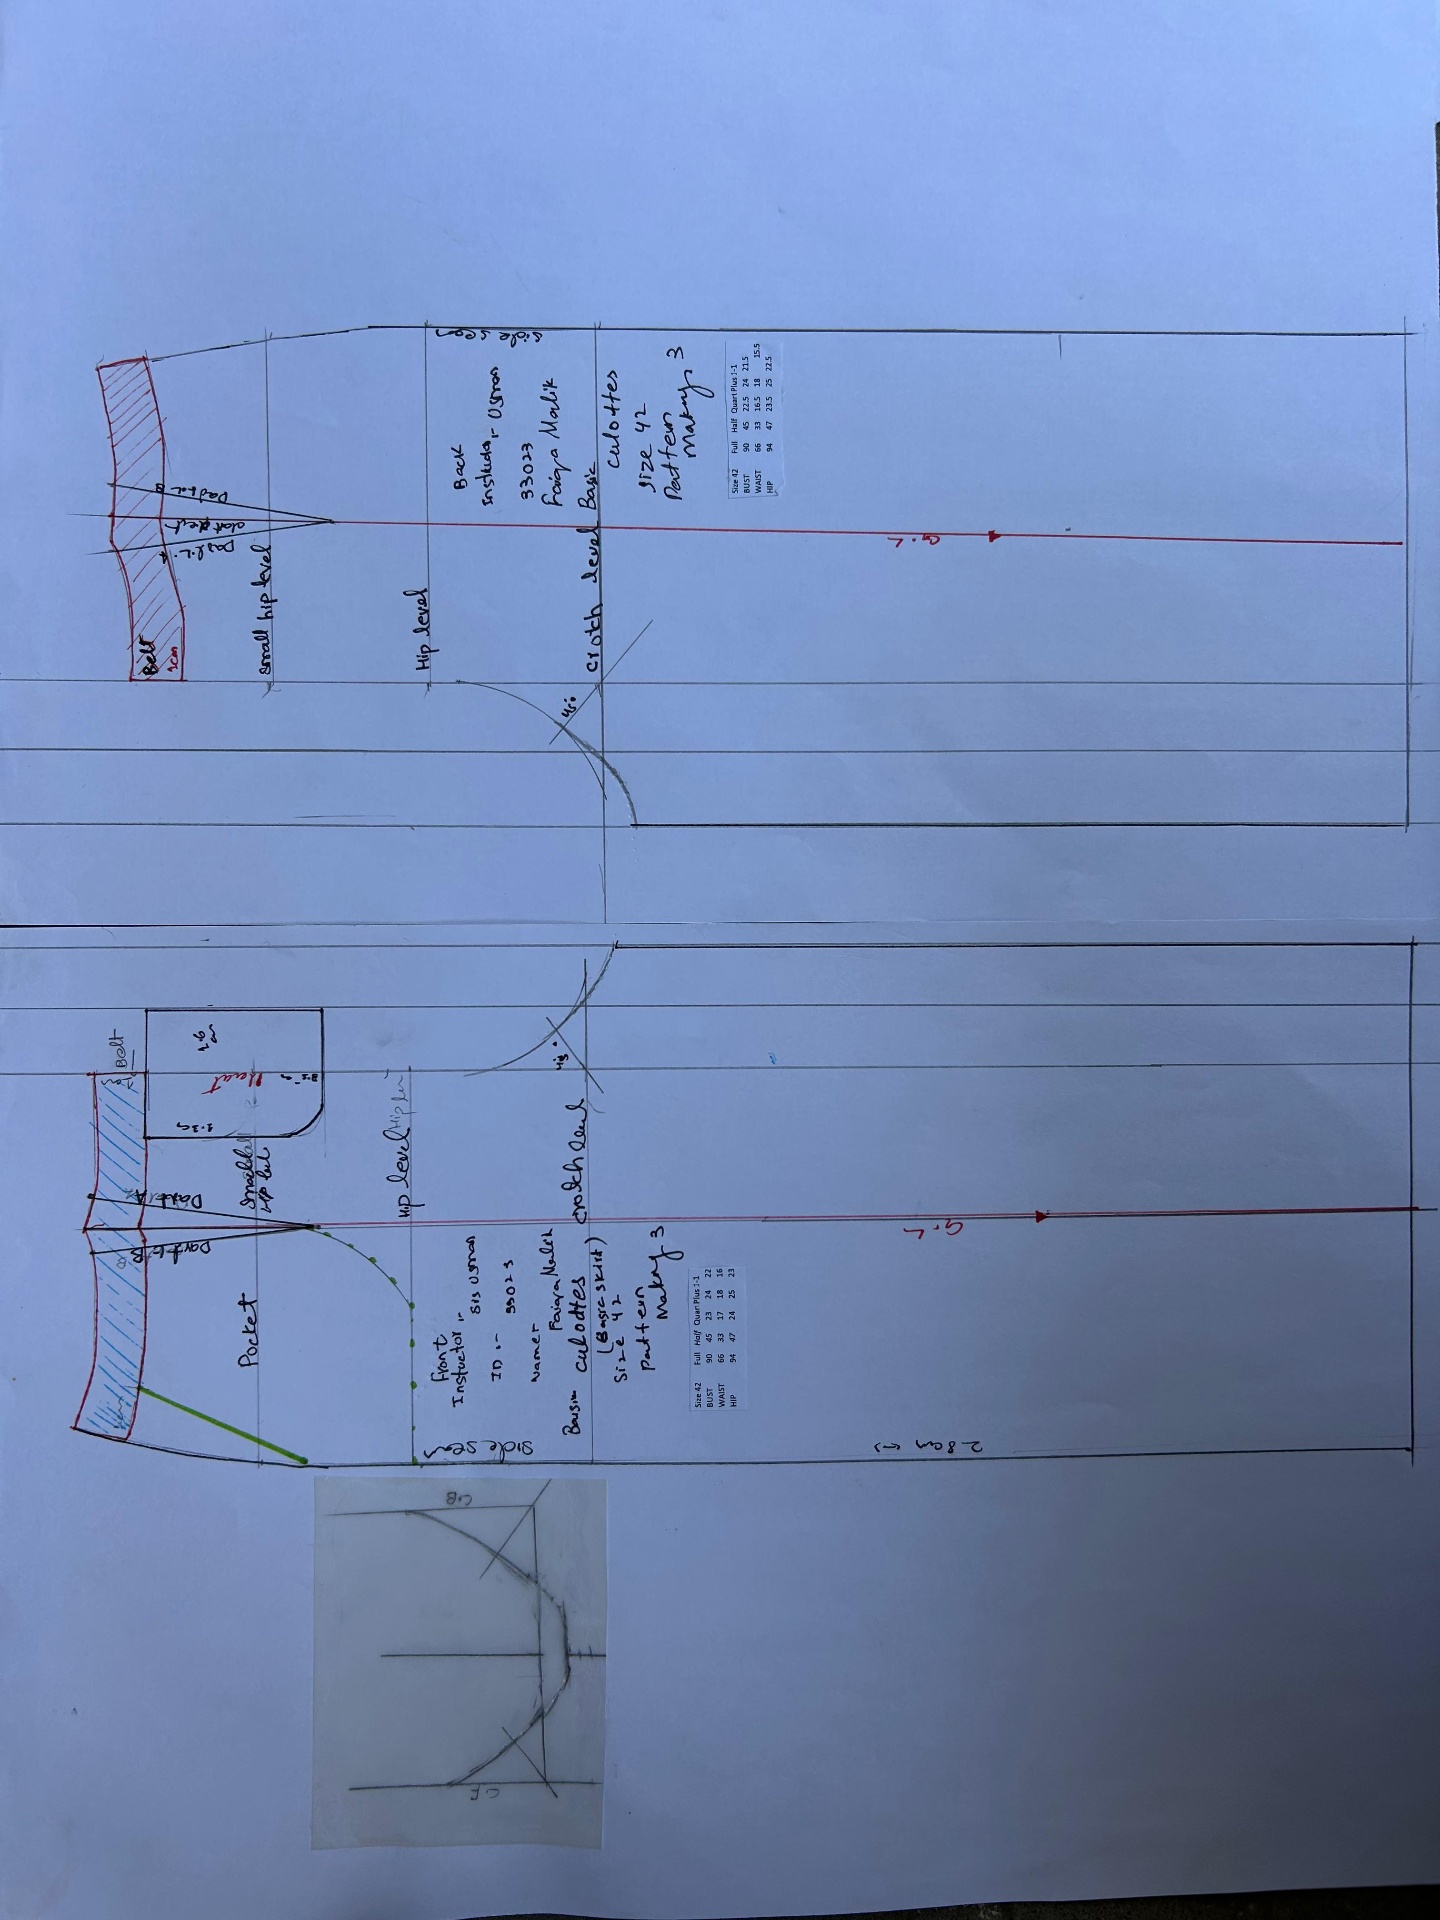 Belt
Dart
Dart
small hip level
Hip level
Crotch level
45°
side seam
Back
33023
Faiqa Malik
Basic
culottes
size 42
Pattern
Making 3
Size 42 Full Half Quart Plus 1-1
BUST 90 45 22.5 24 21.5
WAIST 66 33 16.5 18 15.5
HIP 94 47 23.5 25 22.5
G.L
Belt
Dart
Dart
Pocket
Hip level
Hip level
45°
side seam
Front
Instuctor :-
Sis Usman
ID :- 33023
Name:-
Faiqa Malik
culottes
(Basic skirt)
Size 42
Pattern
Making 3
Size 42 Full Half Quart Plus 1-1
BUST 90 45 23 24 22
WAIST 66 33 17 18 16
HIP 94 47 24 25 23
G.L
C.B
C.F